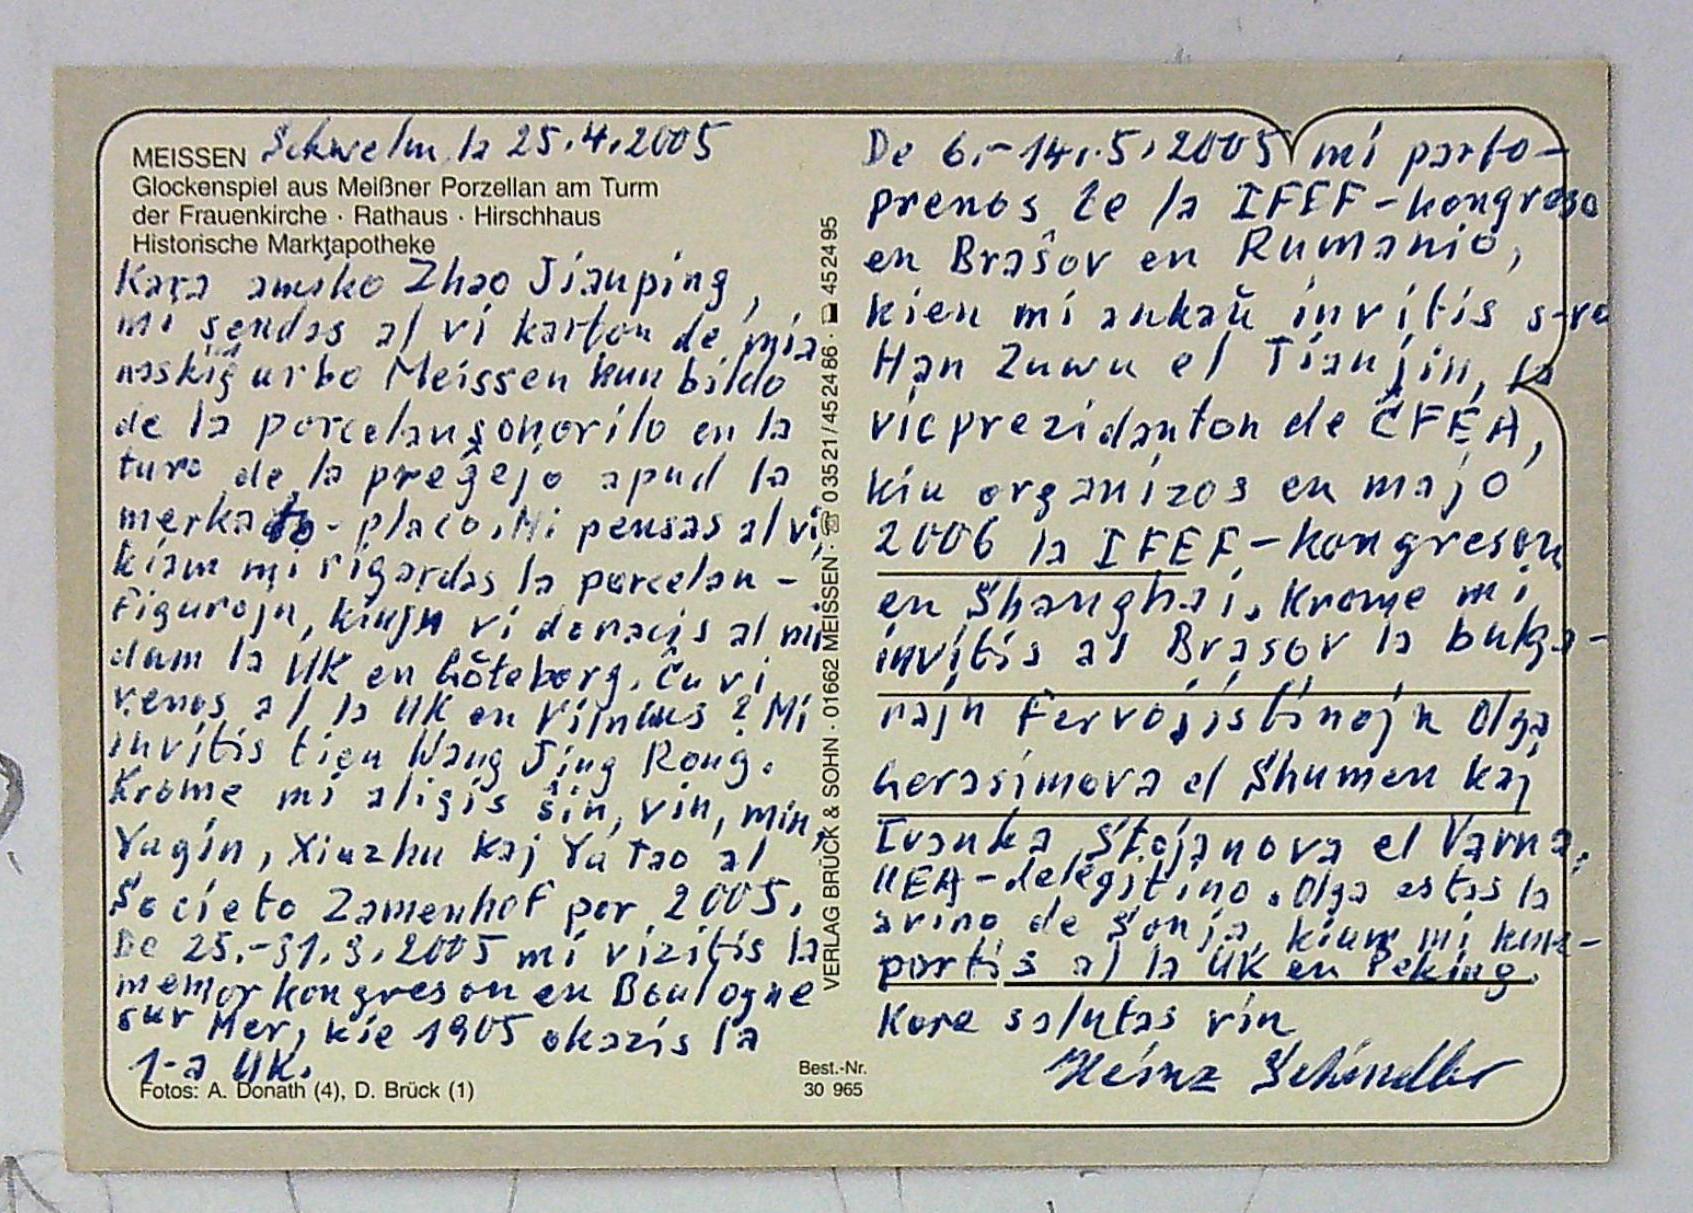 MEISSEN Schwelm, la 25.4.2005
Glockenspiel aus Meißner Porzellan am Turm
der Frauenkirche · Rathaus · Hirschhaus
Historische Marktapotheke
Kara amiko Zhao Jianping,
mi sendas al vi karton de mia
naskiĝurbo Meissen kun bildo
de la porcelansonorilo en la
turo de la preĝejo apud la
merkato-placo. Mi pensas al vi,
kiam mi rigardas la porcelan-
figurojn, kiujn vi donacis al mi
dum la UK en Göteborg. Ĉu vi
venos al la UK en Vilnius? Mi
invitis tien Wang Jing Rong.
Krome mi aligis ŝin, vin, min,
Yagin, Xiuzhu kaj Ya Tao al
Societo Zamenhof por 2005.
De 25.-31.3.2005 mi vizitis la
memorkongreson en Boulogne
sur Mer, kie 1905 okazis la
1-a UK.
Fotos: A. Donath (4), D. Brück (1)
VERLAG BRÜCK & SOHN · 01662 MEISSEN · ☎ 03521/452486 · 452495
Best.-Nr.
30 965
De 6.-14.5.2005 mi parto-
prenos ĉe la IFEF-kongreso
en Braŝov en Rumanio,
kien mi ankaŭ invitis s-ro
Han Zuwu el Tianjin, la
vicprezidanton de ĈFEA,
kiu organizos en majo
2006 la IFEF-kongreson
en Shanghai. Krome mi
invitis al Brasov la bulga-
rajn Fervojistinojn Olga
Gerasimova el Shumen kaj
Ivanka Stojanova el Varna,
UEA-delegitino. Olga estas la
avino de Sonja, kium mi kun-
portis al la UK en Peking.
Kore salutas vin
Heinz Schindler